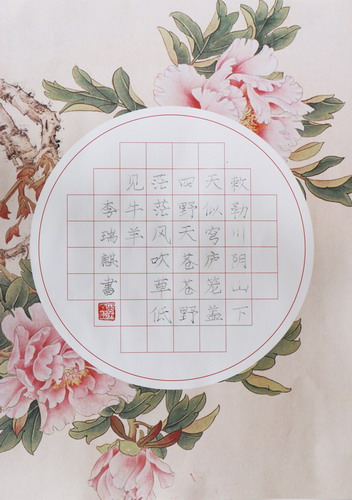 敕勒川阴山下
天似穹庐笼盖
四野天苍苍野
茫茫风吹草低
见牛羊
李瑞麒書